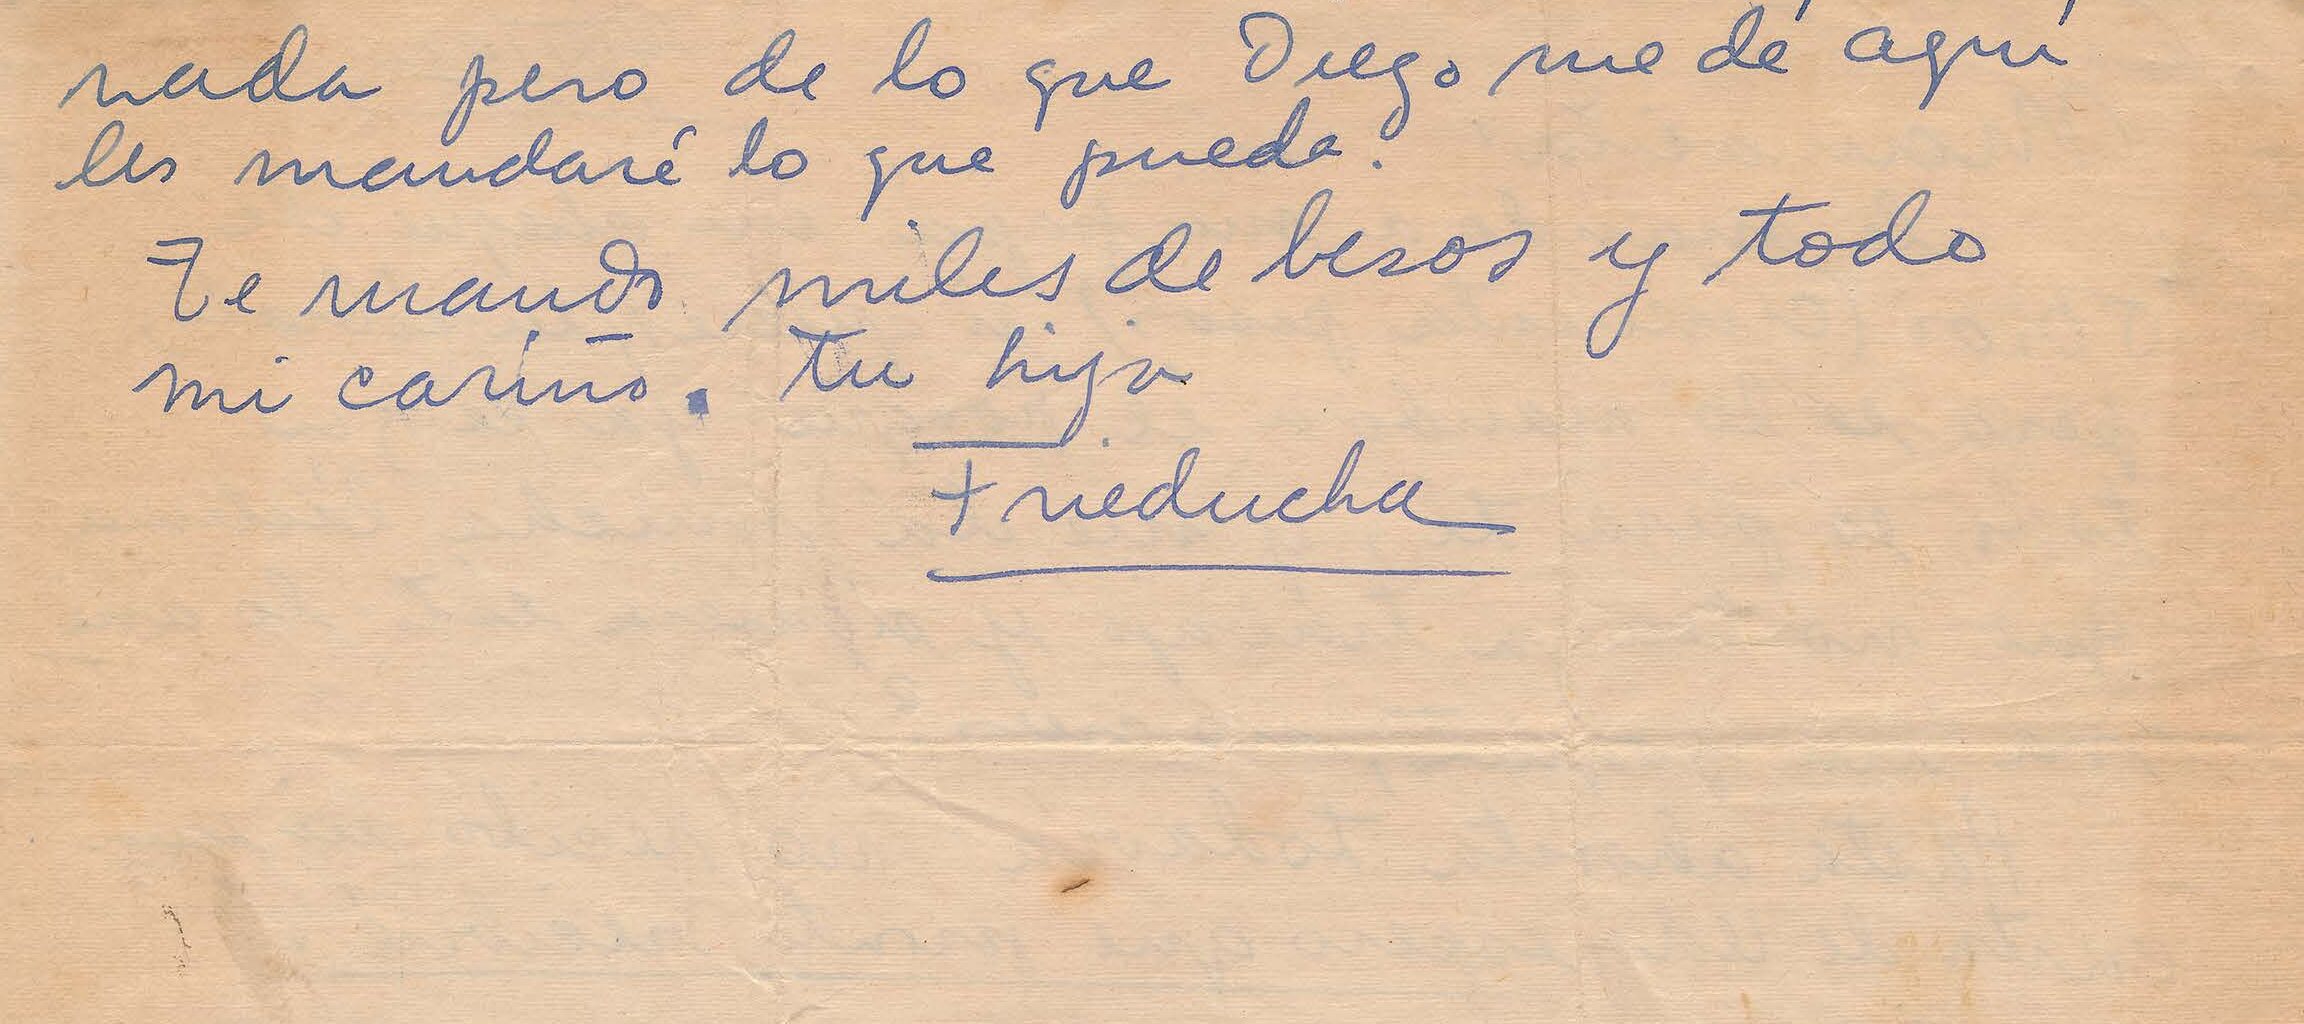 nada pero de lo que Diego me dé aquí
les mandaré lo que pueda.
Te mando miles de besos y todo
mi cariño. tu hija
Frieducha